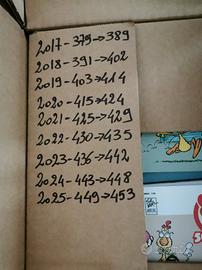 2017-379→389
2018-391→402
2019-403→414
2020-415→424
2021-425→429
2022-430→435
2023-436→442
2024-443→448
2025-449→453